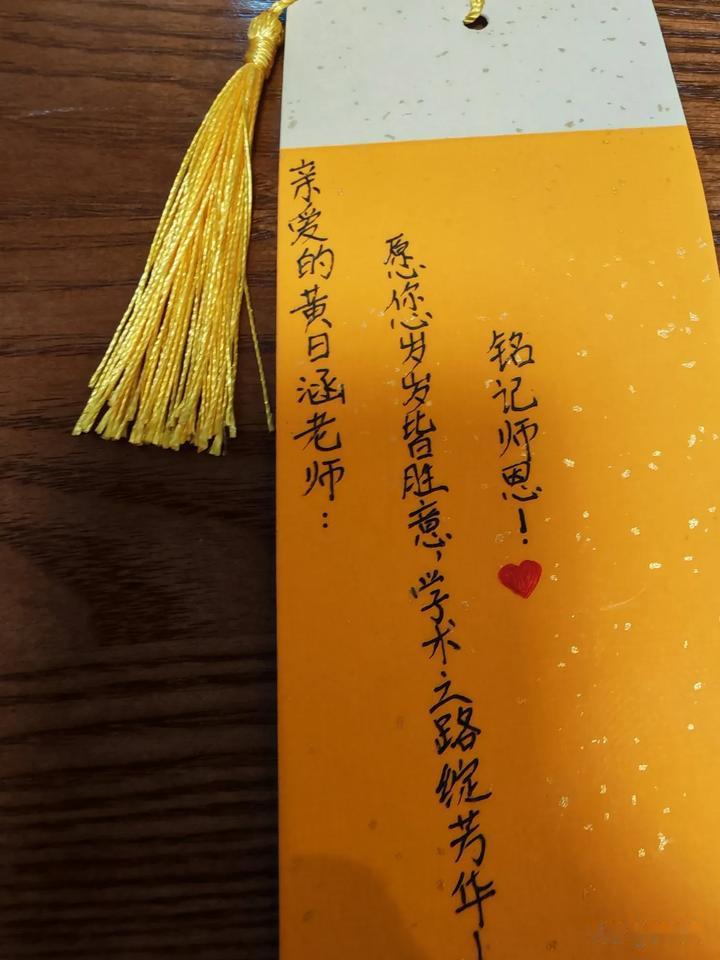 亲爱的黄日涵老师：
愿您岁岁皆胜意，学术之路绽芳华！
铭记师恩！